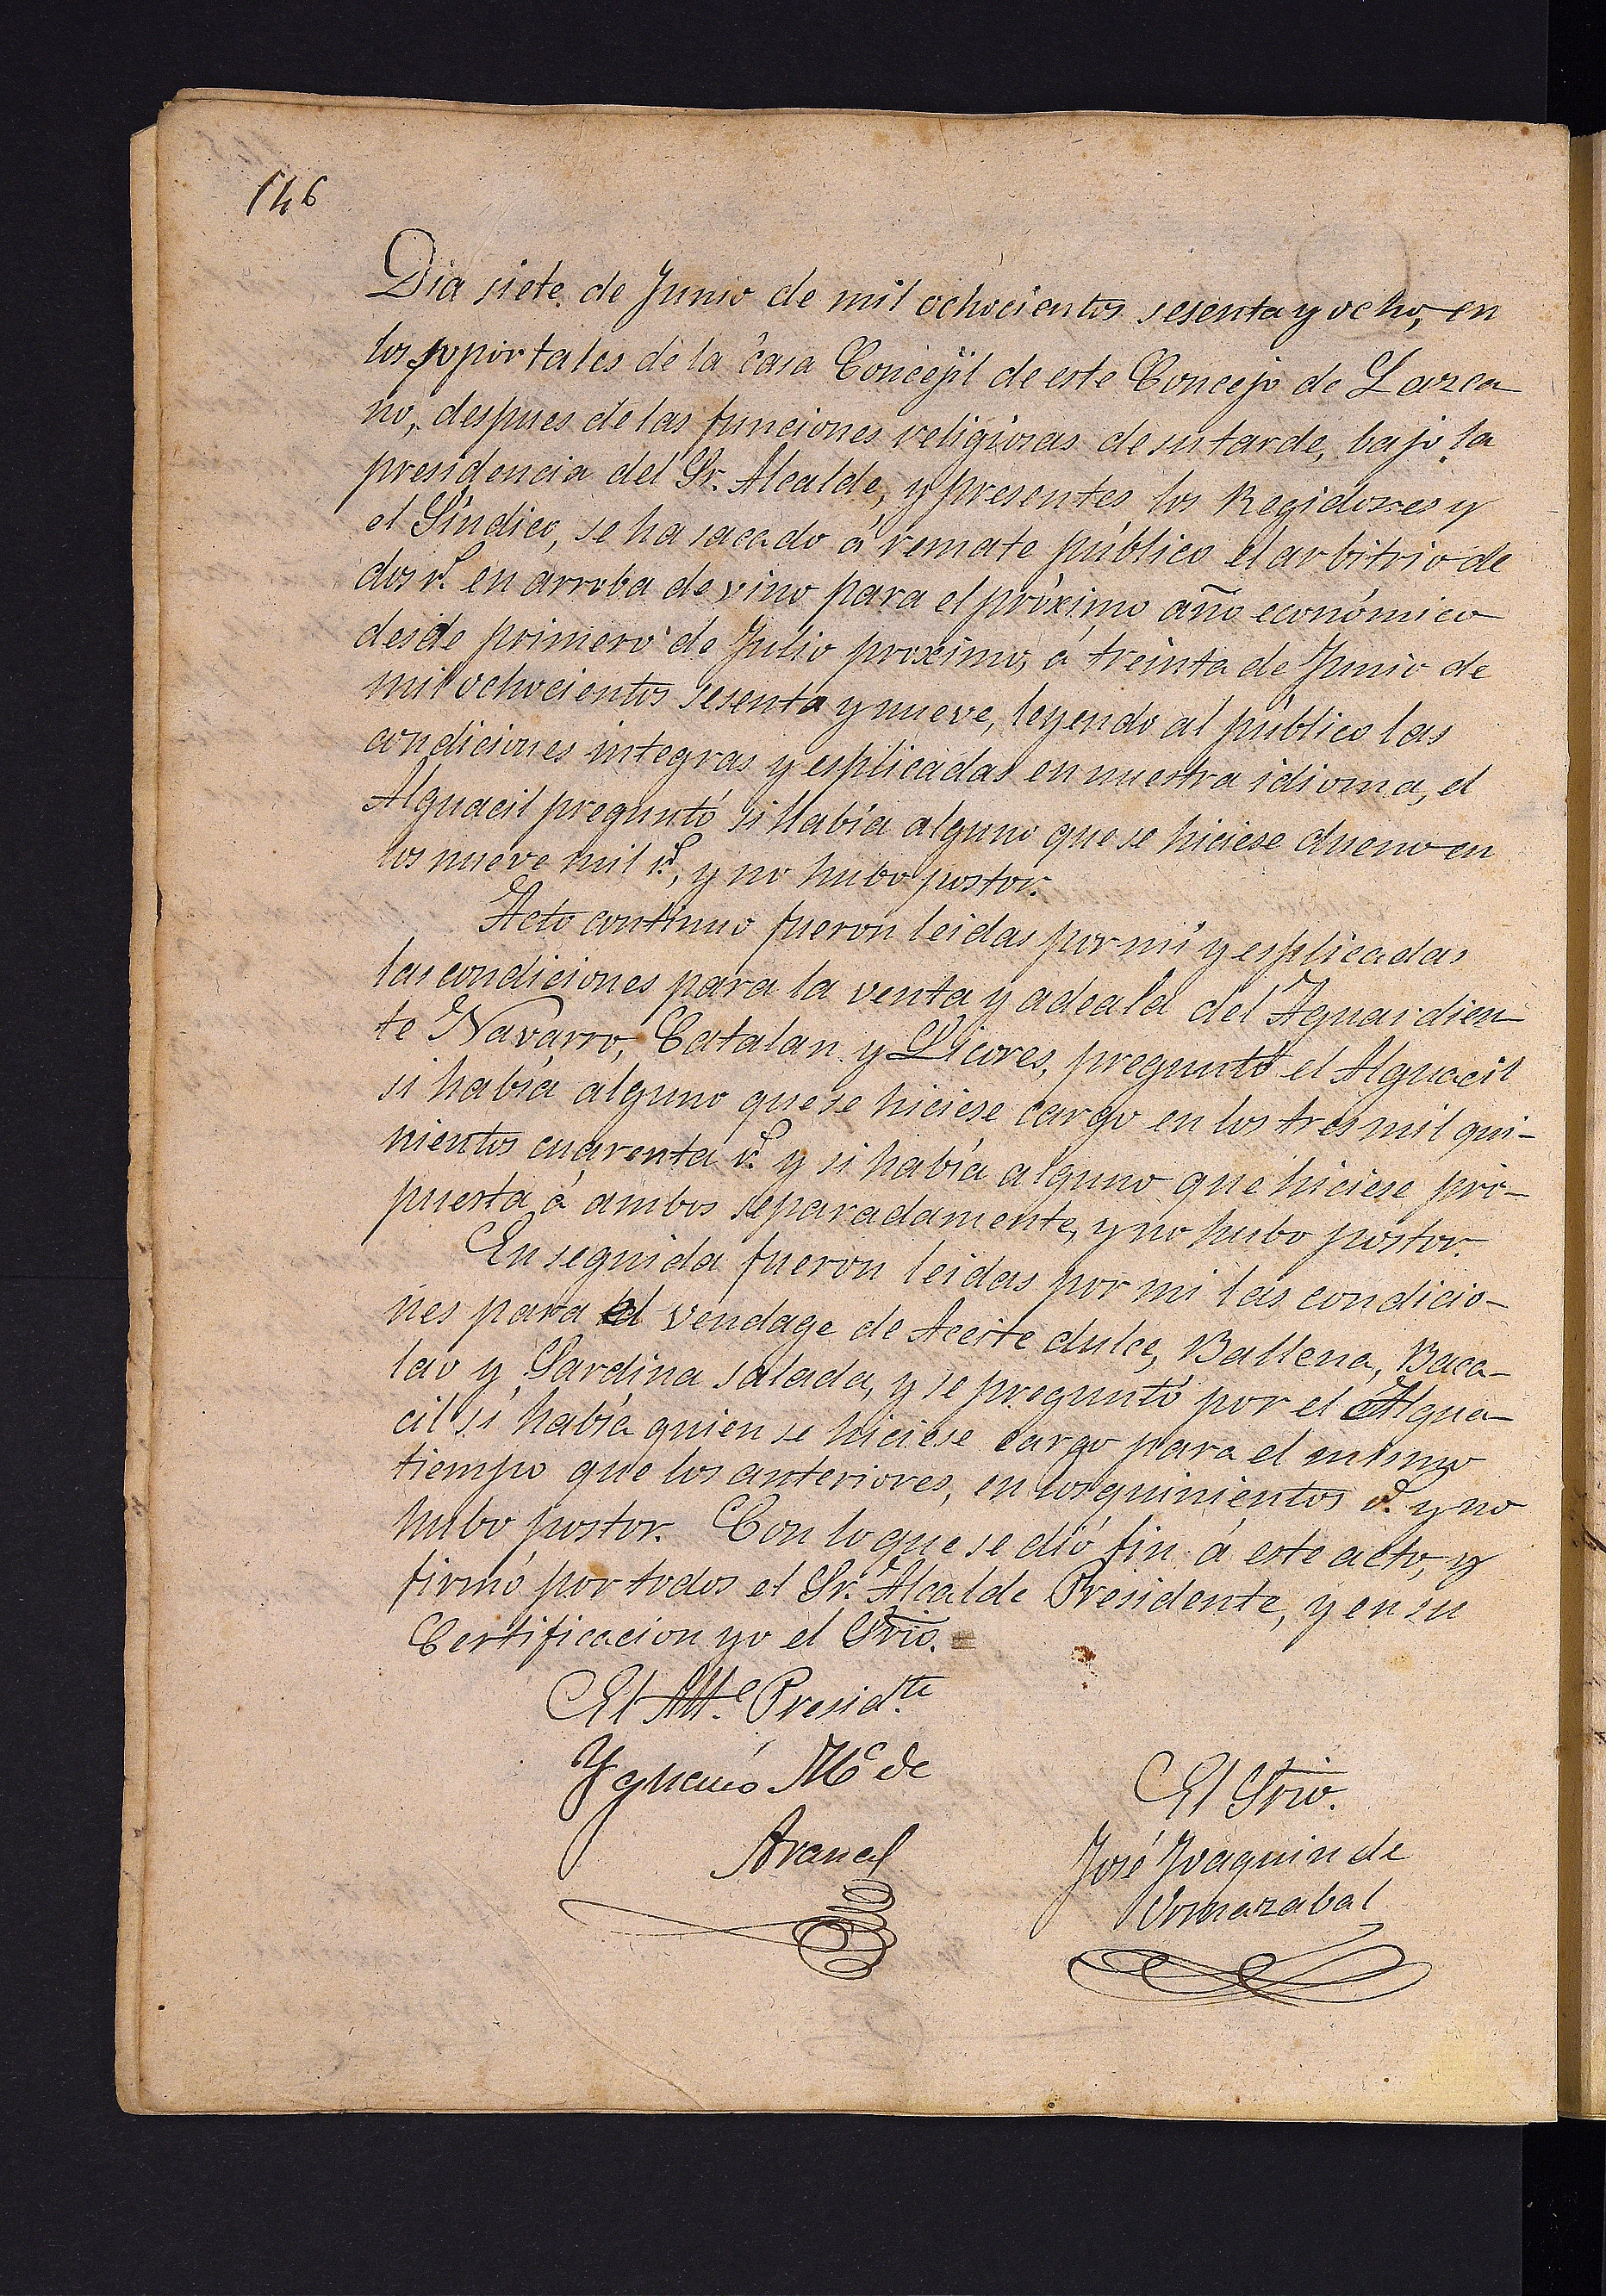 146
Dia siete de Junio de mil ochocientos sesenta y ocho, en
los soportales de la casa Concejil de este Concejo de Lazca
no, despues de las funciones religiosas de su tarde, bajo la
presidencia del Sr. Alcalde, y presentes los Regidores y
el Síndico, se ha sacado á remate público el arbitrio de
dos rs. en arroba de vino para el próximo año económico
desde primero de Julio proximo, á treinta de Junio de
mil ochocientos sesenta y nueve, leyendo al público las
condiciones integras y esplicadas en nuestra idioma, el
Alguacil preguntó si había alguno que se hiciese dueno en
los nueve mil rs., y no hubo postor.
Acto continuo fueron leidas por mí y esplicadas
las condiciones para la venta y adeala del Aguardien
te Navarro, Catalan y Licores, preguntó el Alguacil
si había alguno que se hiciese cargo en los tres mil qui-
nientos cuarenta rs. y si había alguno que hiciese pro-
puesta á ambos separadamente, y no hubo postor.
En seguida fueron leidas por mi las condicio-
nes para el vendage de Aceite dulce, Ballena, Baca-
lao y Sardina salada, y se preguntó por el Algua-
cil si había quien se hiciese cargo para el mismo
tiempo que los anteriores, en los quinientos rs. y no
hubo postor. Con lo que se dió fin á este acto, y
firmó por todos el Sr. Alcalde Presidente, y en su
Certificacion yo el Srio. =
El Alte. Presidte.
Ygnacio Ma de
El Srio.
José Joaquin de
Ormazabal